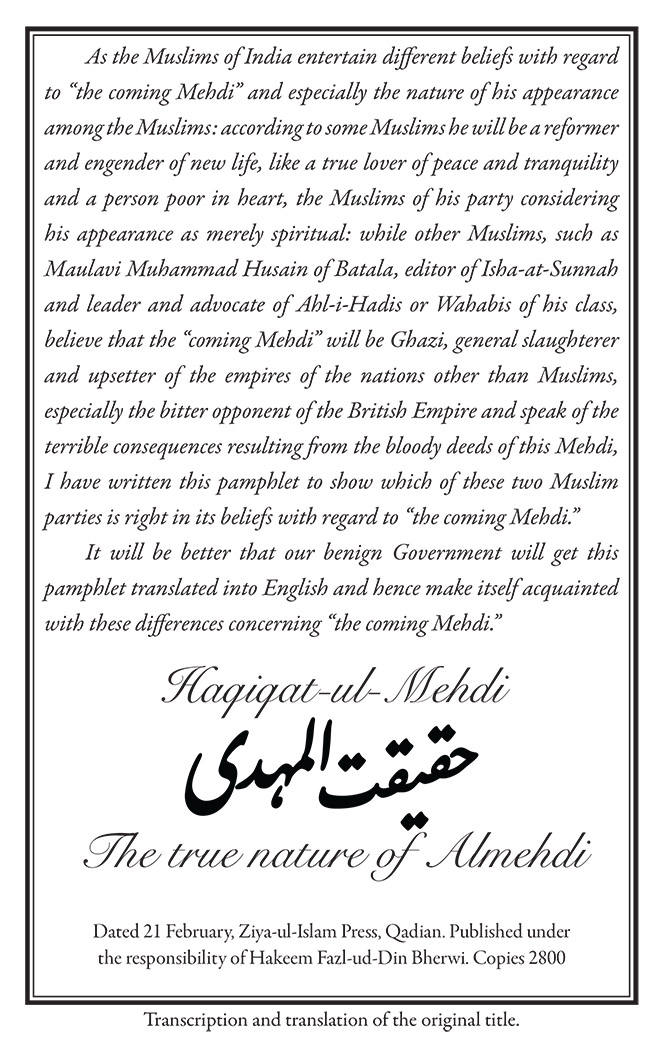 As the Muslims of India entertain different beliefs with regard
to “the coming Mehdi” and especially the nature of his appearance
among the Muslims: according to some Muslims he will be a reformer
and engender of new life, like a true lover of peace and tranquility
and a person poor in heart, the Muslims of his party considering
his appearance as merely spiritual: while other Muslims, such as
Maulavi Muhammad Husain of Batala, editor of Isha-at-Sunnah
and leader and advocate of Ahl-i-Hadis or Wahabis of his class,
believe that the “coming Mehdi” will be Ghazi, general slaughterer
and upsetter of the empires of the nations other than Muslims,
especially the bitter opponent of the British Empire and speak of the
terrible consequences resulting from the bloody deeds of this Mehdi,
I have written this pamphlet to show which of these two Muslim
parties is right in its beliefs with regard to “the coming Mehdi.”
It will be better that our benign Government will get this
pamphlet translated into English and hence make itself acquainted
with these differences concerning “the coming Mehdi.”
Haqiqat-ul-Mehdi
حقیقت المہدی
The true nature of Almehdi
Dated 21 February, Ziya-ul-Islam Press, Qadian. Published under
the responsibility of Hakeem Fazl-ud-Din Bherwi. Copies 2800
Transcription and translation of the original title.